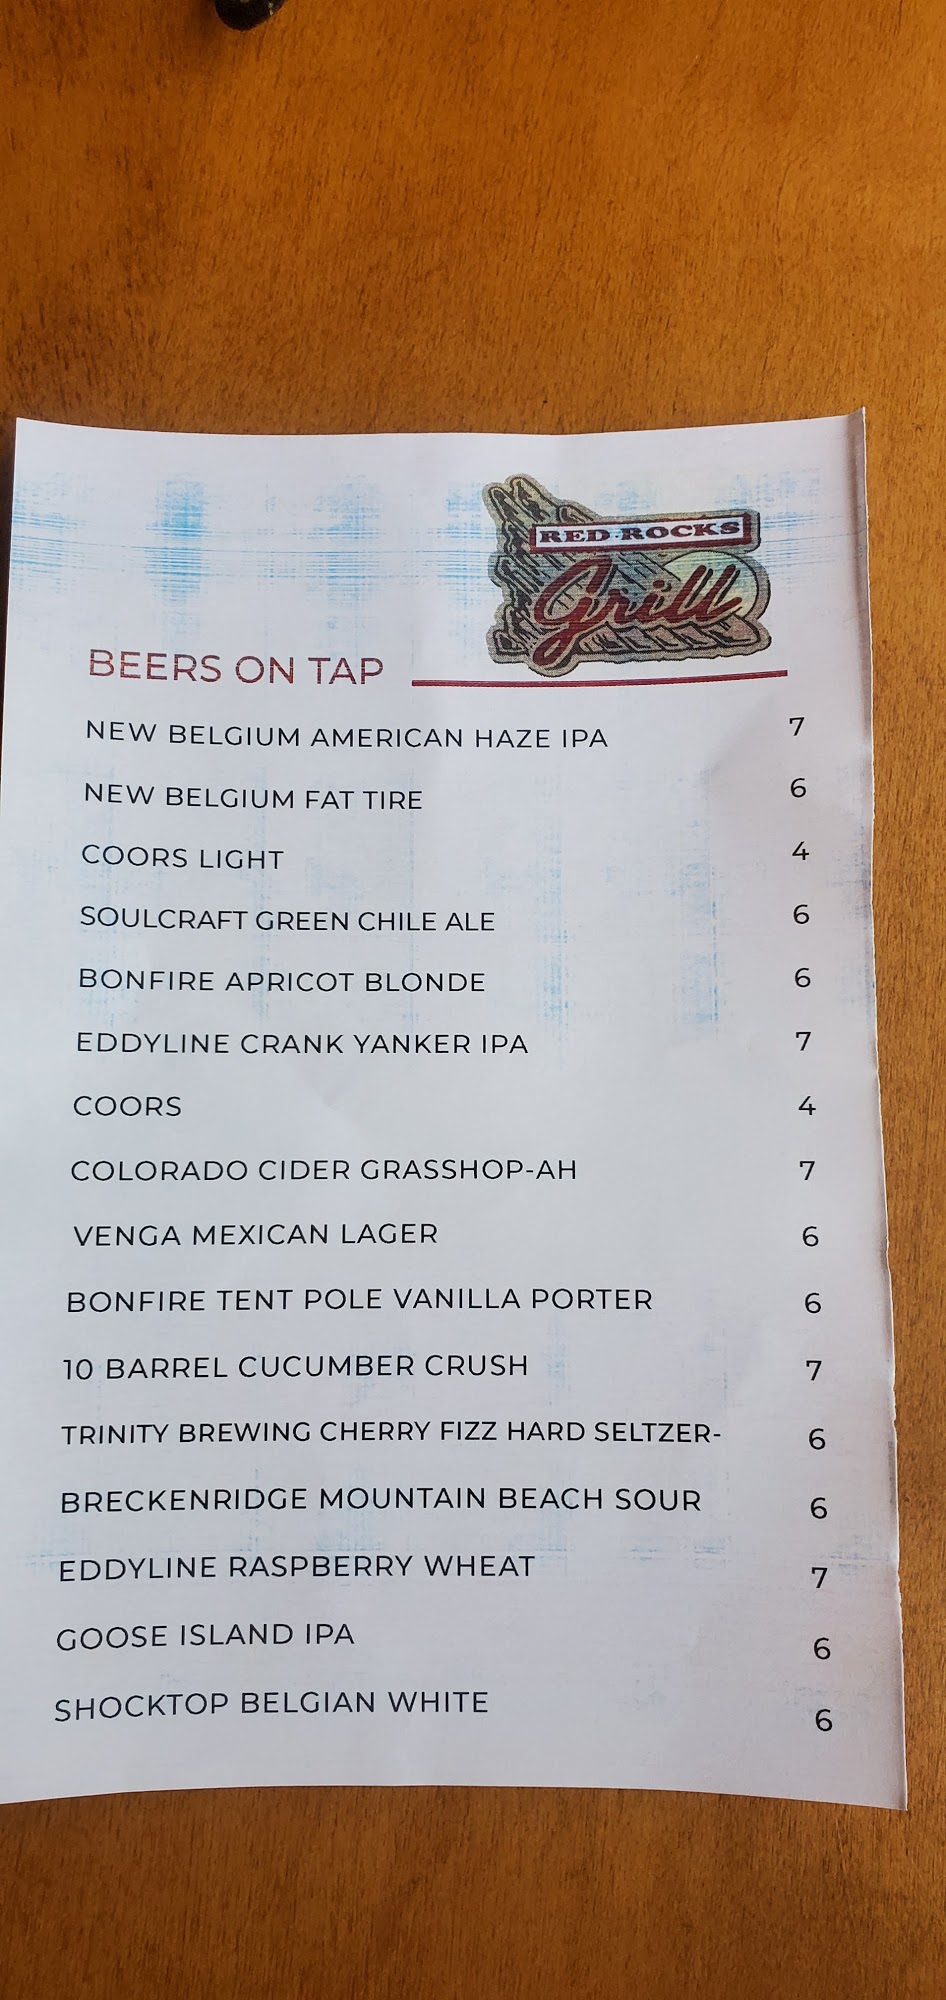 RED ROCKS
Grill
BEERS ON TAP
NEW BELGIUM AMERICAN HAZE IPA 7
NEW BELGIUM FAT TIRE 6
COORS LIGHT 4
SOULCRAFT GREEN CHILE ALE 6
BONFIRE APRICOT BLONDE 6
EDDYLINE CRANK YANKER IPA 7
COORS 4
COLORADO CIDER GRASSHOP-AH 7
VENGA MEXICAN LAGER 6
BONFIRE TENT POLE VANILLA PORTER 6
10 BARREL CUCUMBER CRUSH 7
TRINITY BREWING CHERRY FIZZ HARD SELTZER- 6
BRECKENRIDGE MOUNTAIN BEACH SOUR 6
EDDYLINE RASPBERRY WHEAT 7
GOOSE ISLAND IPA 6
SHOCKTOP BELGIAN WHITE 6